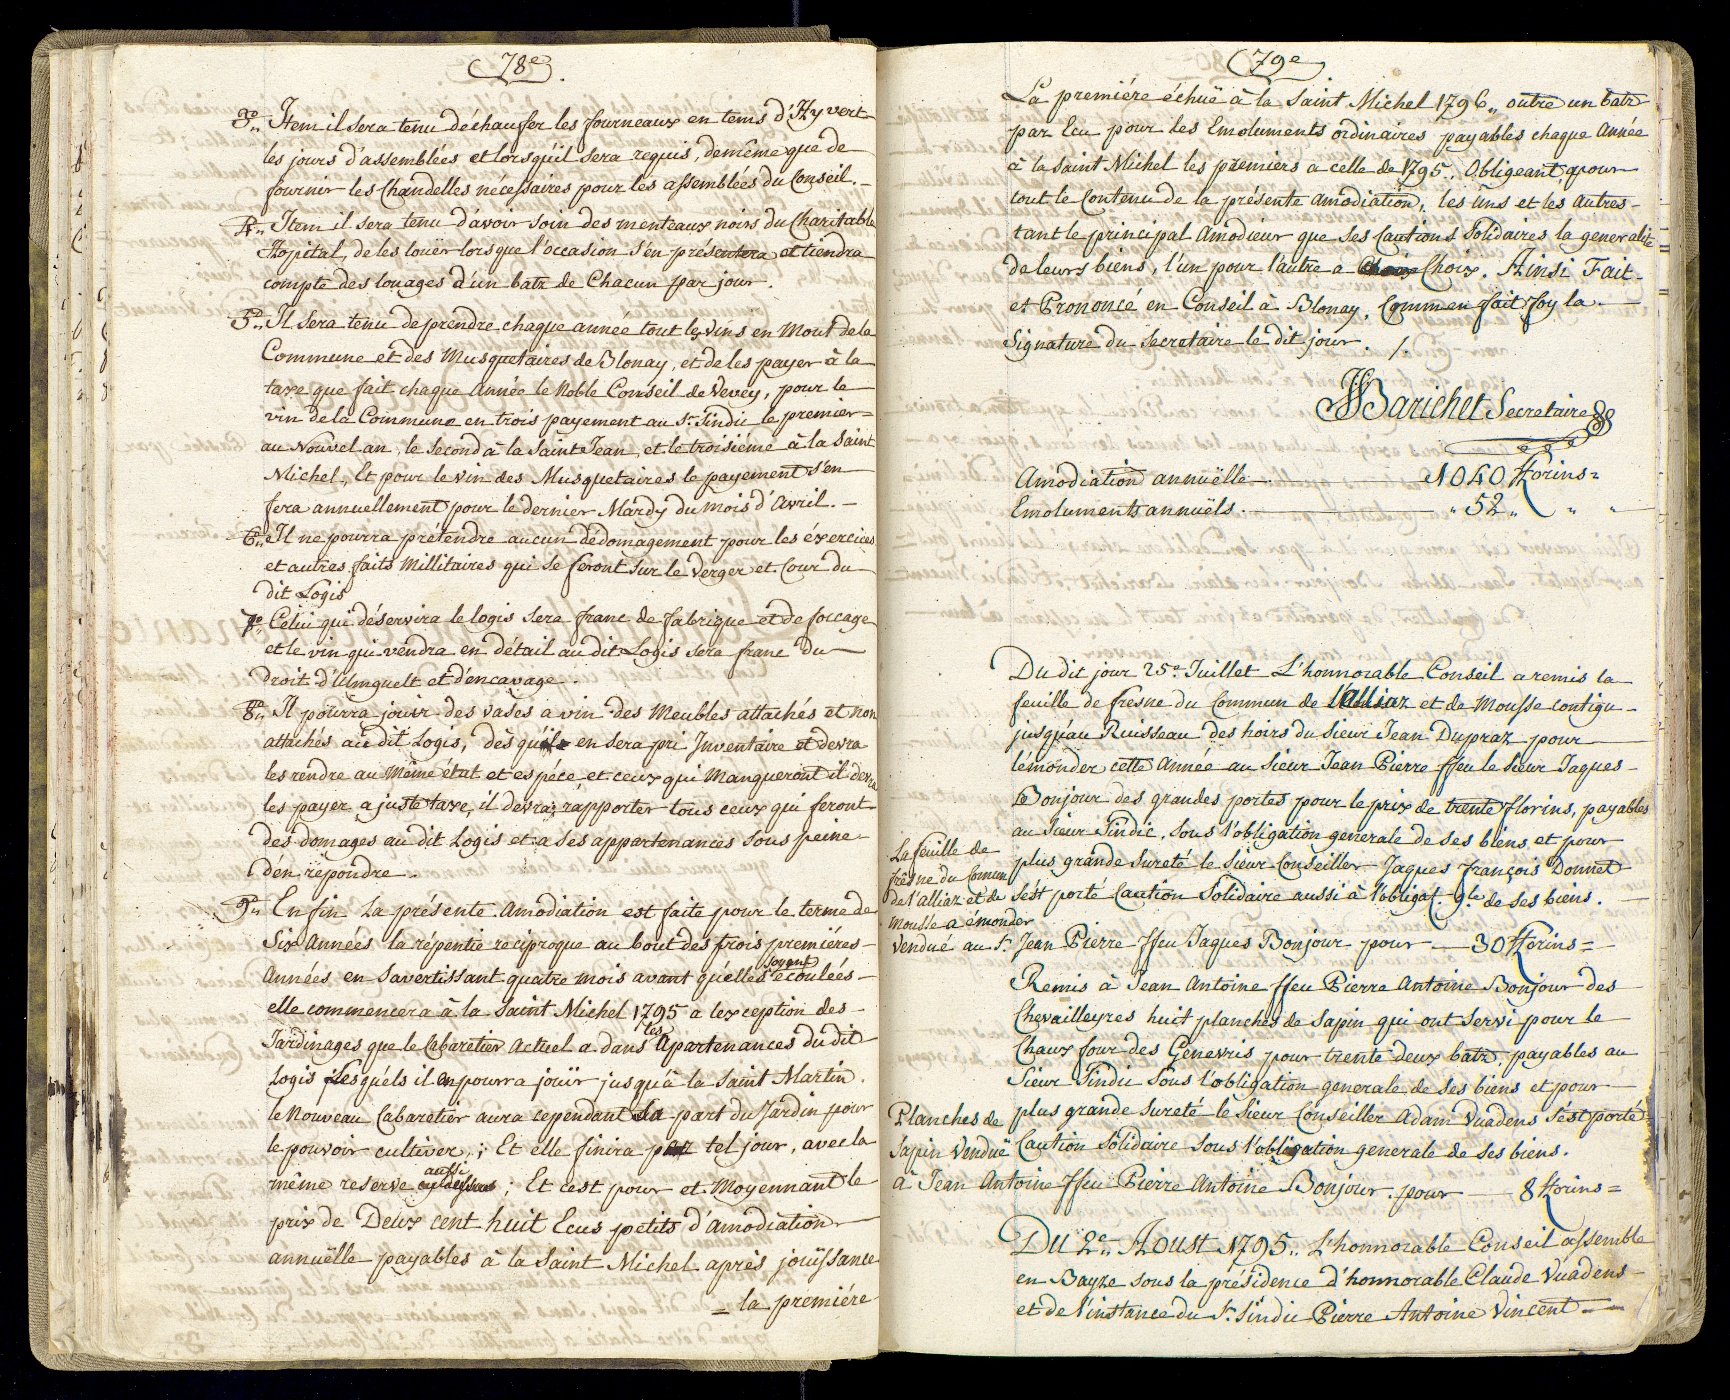 78e.
3o.. Item il sera tenu déchaufer les fourneaux en tems d'Hyvert
les jours d'assemblées et lorsqu'il sera requis, demême que de
fournir les Chandelles nécessaires pour les assemblées du Conseil.
4o.. Item il sera tenu d'avoir soin des menteaux noirs du Charitable
Hopital, de les louër lorsque l'occasion s'en présentera et tiendra
compte des louages d'un batz de Chacun par jour.
5o.. Il sera tenu de prendre chaque année tout les vins en Mout de la
Commune et des Musquetaires de Blonay, et de les payer à la
taxe que fait chaque Année le Noble Conseil de Vevey, pour le
vin de la Commune en trois payement au Sr. Sindic le premier=
au Nouvel an, le Second à la Saint Jean, et le troisiéme à la Saint
Michel, Et pour le vin des Musquetaires le payement s'en
fera annuellement pour le dernier Mardy du mois d'Avril.
6o.. Il ne pourra prétendre aucun dédomagement pour les éxercices
et autres faits Millitaires qui se feront sur le Verger et Cour du
dit Logis
7o.. Celui qui déservira le logis sera franc de fabrique et de foccage
et le vin qui vendra en détail au dit Logis sera franc du
droit d'Umguelt et d'encavage.
8o.. Il pourra jouir des vases a vin des Meubles attachés et non
attachés au dit Logis, dès qu'il en sera pri Inventaire et devra
les rendre au Même état et espéce et ceux qui Manqueront il devra
les payer a juste taxe, il devra rapporter tous ceux qui feront
des domages au dit Logis et a ses appartenances sous peine
d'en répondre.
9o.. Enfin La présente Amodiation est faite pour le terme de
Six Années la répentie reciproque au bout des trois premiéres
Années en Savertissant quatre mois avant qu'elles soyent écoulées
elle commencera à la Saint Michel 1795 a lexception des
Jardinages que le Cabaretier Actuel a dans les Apartenances du dit
Logis lesquéls il en pourra jouïr jusqu'à la Saint Martin.
le Nouveau Cabaretier aura cependant Sa part du Jardin pour
le pouvoir cultiver,; Et elle finira par tel jour, avec la
même reserve aussi; Et c'est pour et Moyennant le
prix de Deux cent huit Ecus petits d'amodiation
annuëlle payables à la Saint Michel après jouïssance
= la premiére
79e
La premiére échuë à la Saint Michel 1796,, outre un batz
par Ecu pour les Emoluments ordinaires payables chaque Année
à la Saint Michel les premiers a celle de 1795.. Obligeant pour
tout le Contenu de la présente Amodiation, les Uns et les Autres
tant le principal Amodieur que ses Cautions Solidaires la generalité
de leurs biens, l'un pour l'autre a Choix. Ainsi Fait
et Prononcé en Conseil à Blonay, Comme en fait foy la
Signature du Secretaire le dit jour. /.
Barichet Secretaire
Amodiation annuëlle 1040 florins=
Emoluments annuëls. " 52 " " "
Du dit jour 25e. Juillet L'honnorable Conseil a remis la
feuille de fresne du Commun de l'Alliaz et de Mousse contigu
jusqu'au Ruisseau des hoirs du Sieur Jean Dupraz pour
lémonder cette Année au Sieur Jean Pierre ffeu le Sieur Jaques
Bonjour des grandes portes pour le prix de trente florins, payables
au Sieur Sindic, Sous l'obligation generale de ses biens et pour
plus grande Sureté le Sieur Conseiller Jaques François Donnet
s'est porté Caution Solidaire aussi à l'obligat. gle. de ses biens.
La feuille de
frêne du Comun
de l'alliaz et de
Mousse a émonder
Vendué au Sr. Jean Pierre ffeu Jaques Bonjour pour 30 florins=
Remis à Jean Antoine ffeu Pierre Antoine Bonjour des
Chevailleyres huit planches de Sapin qui ont servi pour le
Chaux four des Genevris pour trente deux batz payables au
Sieur Sindic Sous l'obligation generale de ses biens et pour
plus grande Sureté le Sieur Conseiller Adam Vuadens s'est porté
Caution Solidaire Sous l'obligation generale de ses biens.
Planches de
Sapin Venduë
à Jean Antoine ffeu Pierre Antoine Bonjour pour 8 florins=
Du 2e.. Aoust 1795.. L'honnorable Conseil assemblé
en Bayze sous la présidence d'honnorable Claude Vuadens
et de l'instance du Sr. Sindic Pierre Antoine Vincent